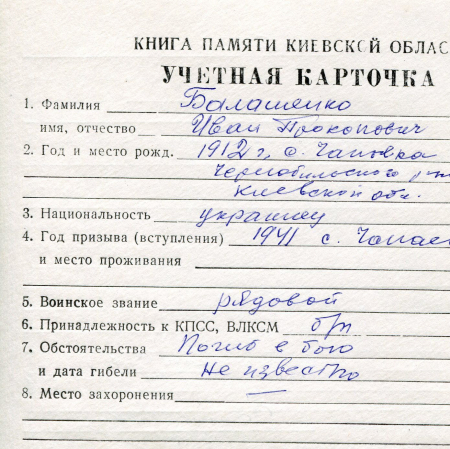 КНИГА ПАМЯТИ КИЕВСКОЙ ОБЛАС
УЧЕТНАЯ КАРТОЧКА
1. Фамилия Балашенко
имя, отчество Иван Прокопович
2. Год и место рожд. 1912 г, с.
Чернобыльского
Киевской обл.
3. Национальность украинец
4. Год призыва (вступления) 1941 с. Чапаев
и место проживания
5. Воинское звание рядовой
6. Принадлежность к КПСС, ВЛКСМ б/п
7. Обстоятельства Погиб в бою
и дата гибели Не известно
8. Место захоронения —